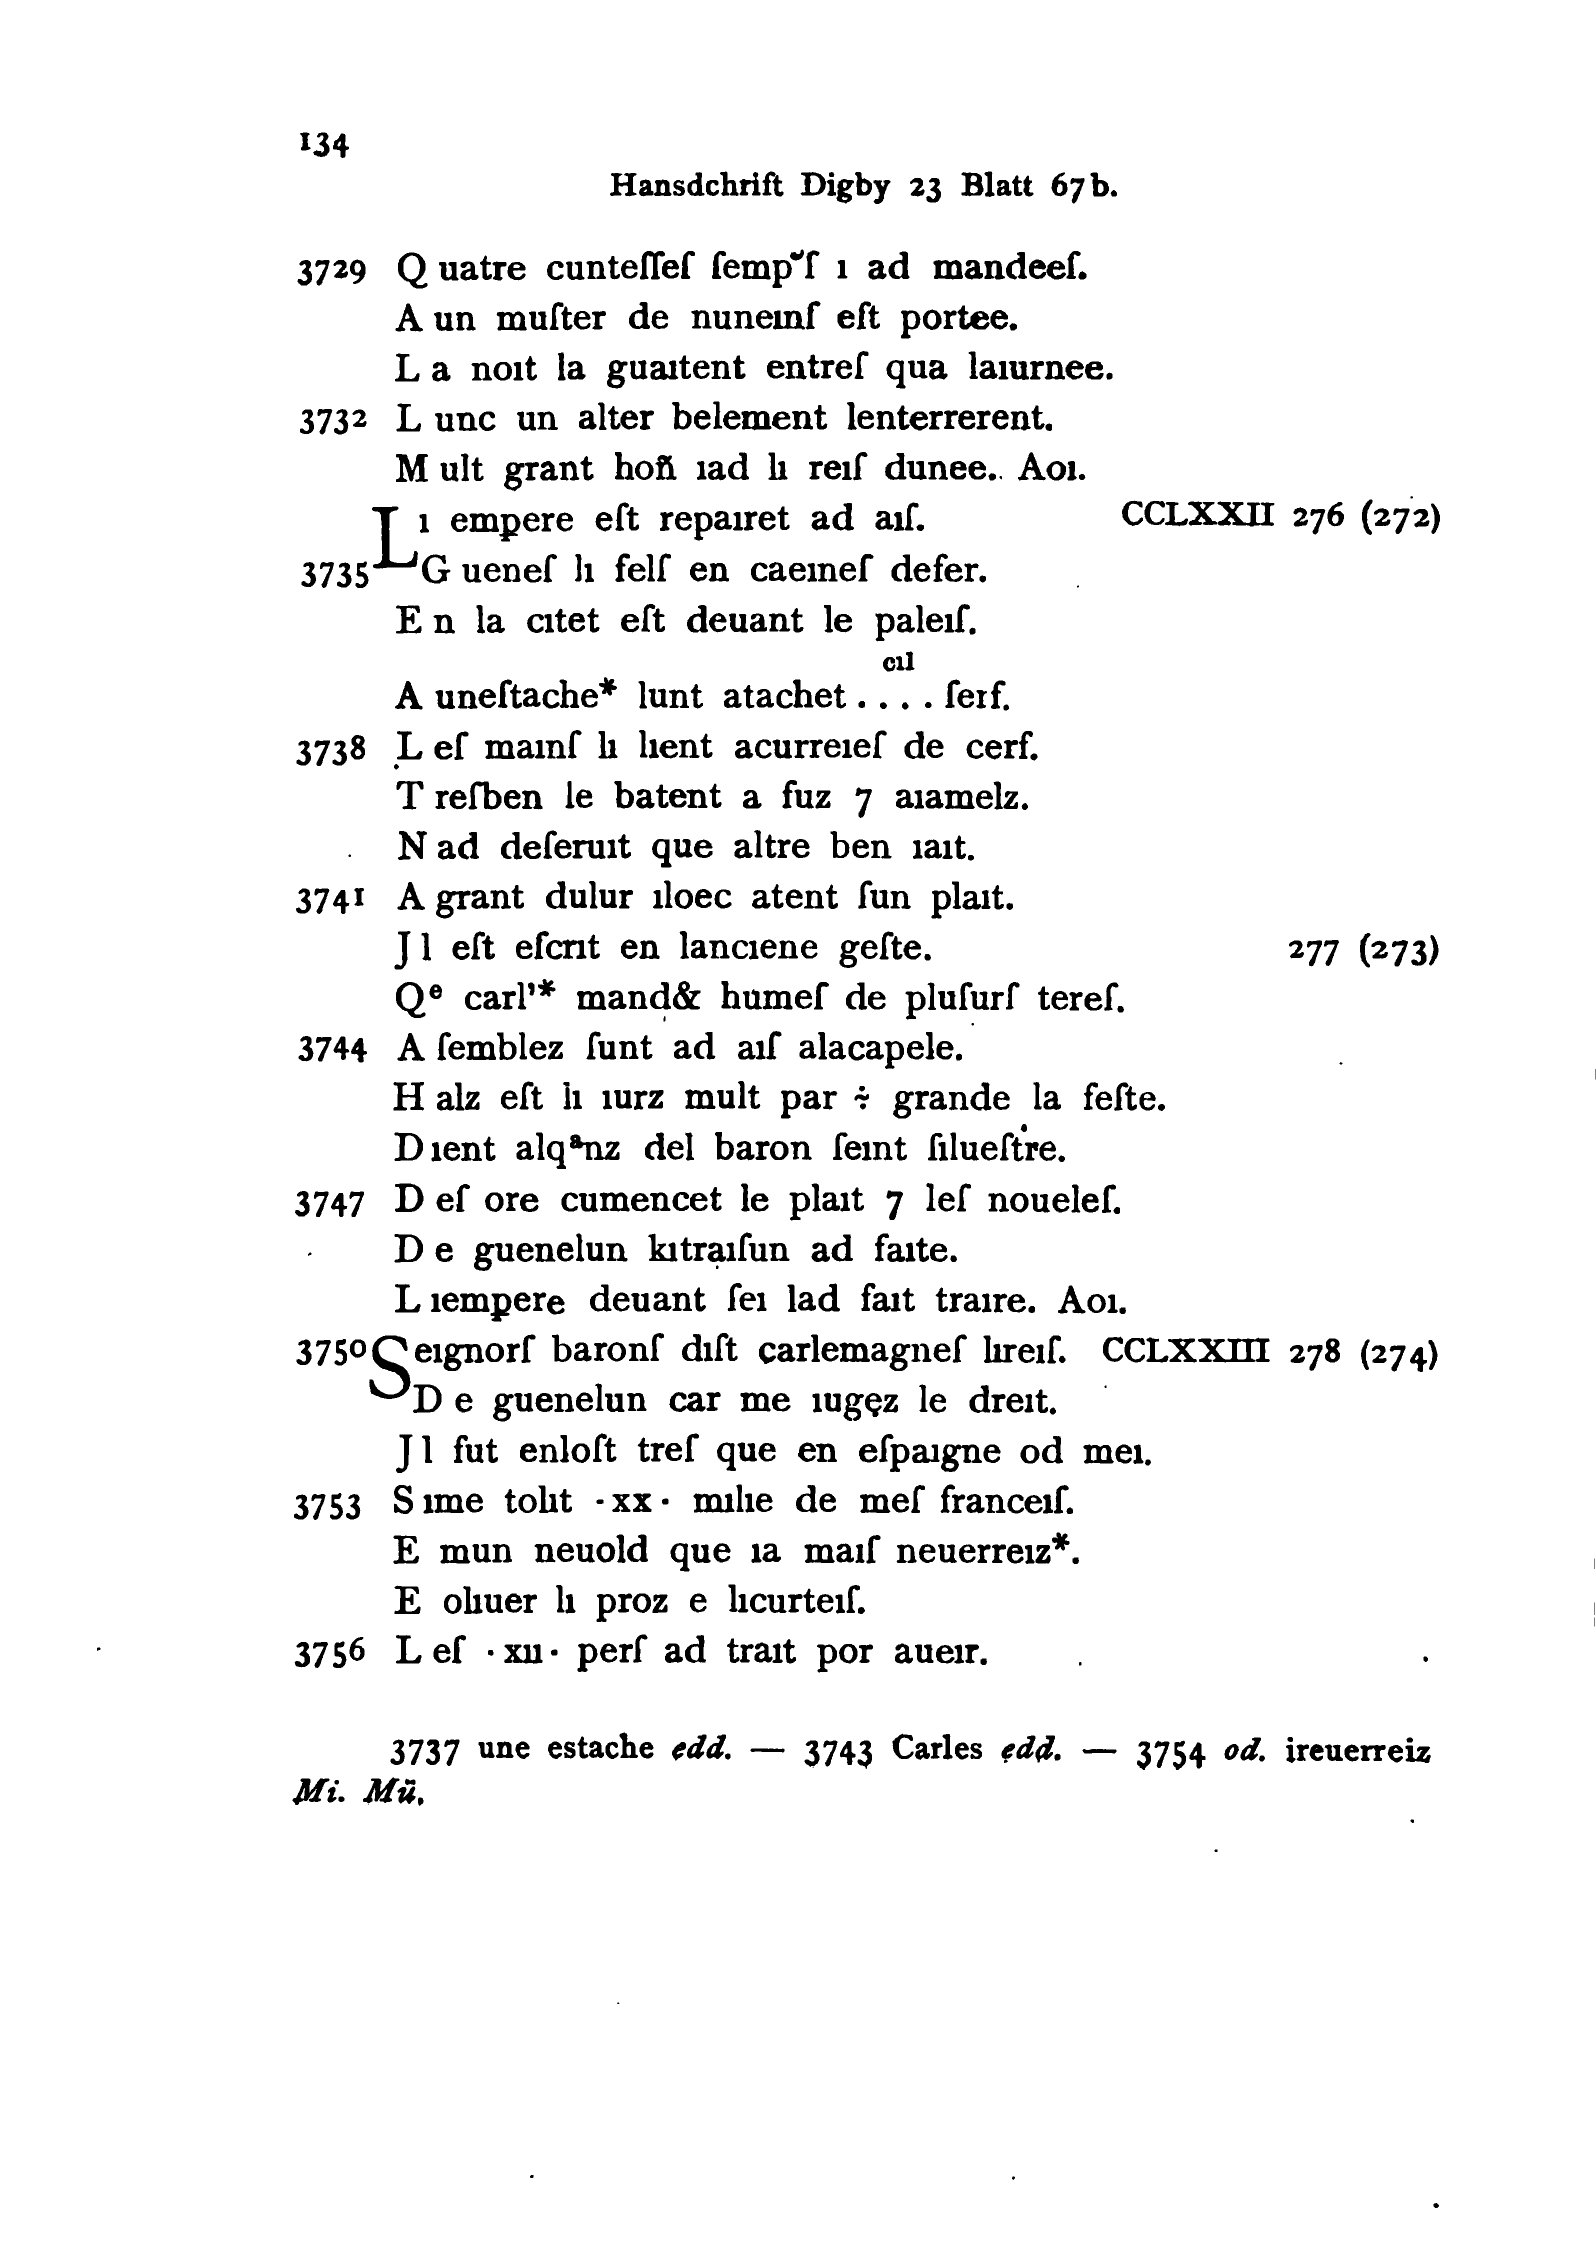 134
Hansdchrift Digby 23 Blatt 67b.
3729 Q uatre cunteſſeſ ſempᵕſ ı ad mandeeſ.
A un muſter de nuneınſ eſt portee.
L a noıt la guaıtent entreſ qua laıurnee.
3732 L unc un alter belement lenterrerent.
M ult grant hoñ ıad lı reıſ dunee. Aoı.
Lı empere eſt repaıret ad aıſ. CCLXXII 276 (272)
3735 G ueneſ lı felſ en caeıneſ defer.
E n la cıtet eſt deuant le paleıſ.
cıl
A uneſtache* lunt atachet . . . . ſerſ.
3738 L eſ maınſ lı lıent acurreıeſ de cerf.
T reſben le batent a fuz 7 aıamelz.
N ad deſeruıt que altre ben ıaıt.
3741 A grant dulur ıloec atent ſun plaıt.
J l eſt eſcrıt en lancıene geſte. 277 (273)
Qᵉ carl'* mand& humeſ de pluſurſ tereſ.
3744 A ſemblez ſunt ad aıſ alacapele.
H alz eſt lı ıurz mult par ∻ grande la feſte.
D ıent alqᵃnz del baron ſeınt ſılueſtre.
3747 D eſ ore cumencet le plaıt 7 leſ noueleſ.
D e guenelun kıtraıſun ad faıte.
L ıempere deuant ſeı lad faıt traıre. Aoı.
3750 Seıgnorſ baronſ dıſt carlemagneſ lıreıſ. CCLXXIII 278 (274)
D e guenelun car me ıugez le dreıt.
J l fut enloſt treſ que en eſpaıgne od meı.
3753 S ıme tolıt ·xx· mılıe de meſ franceıſ.
E mun neuold que ıa maıſ neuerreız*.
E olıuer lı proz e lıcurteıſ.
3756 L eſ ·xıı· perſ ad traıt por aueır.
3737 une estache edd. — 3743 Carles edd. — 3754 od. ireuerreiz
Mi. Mü.